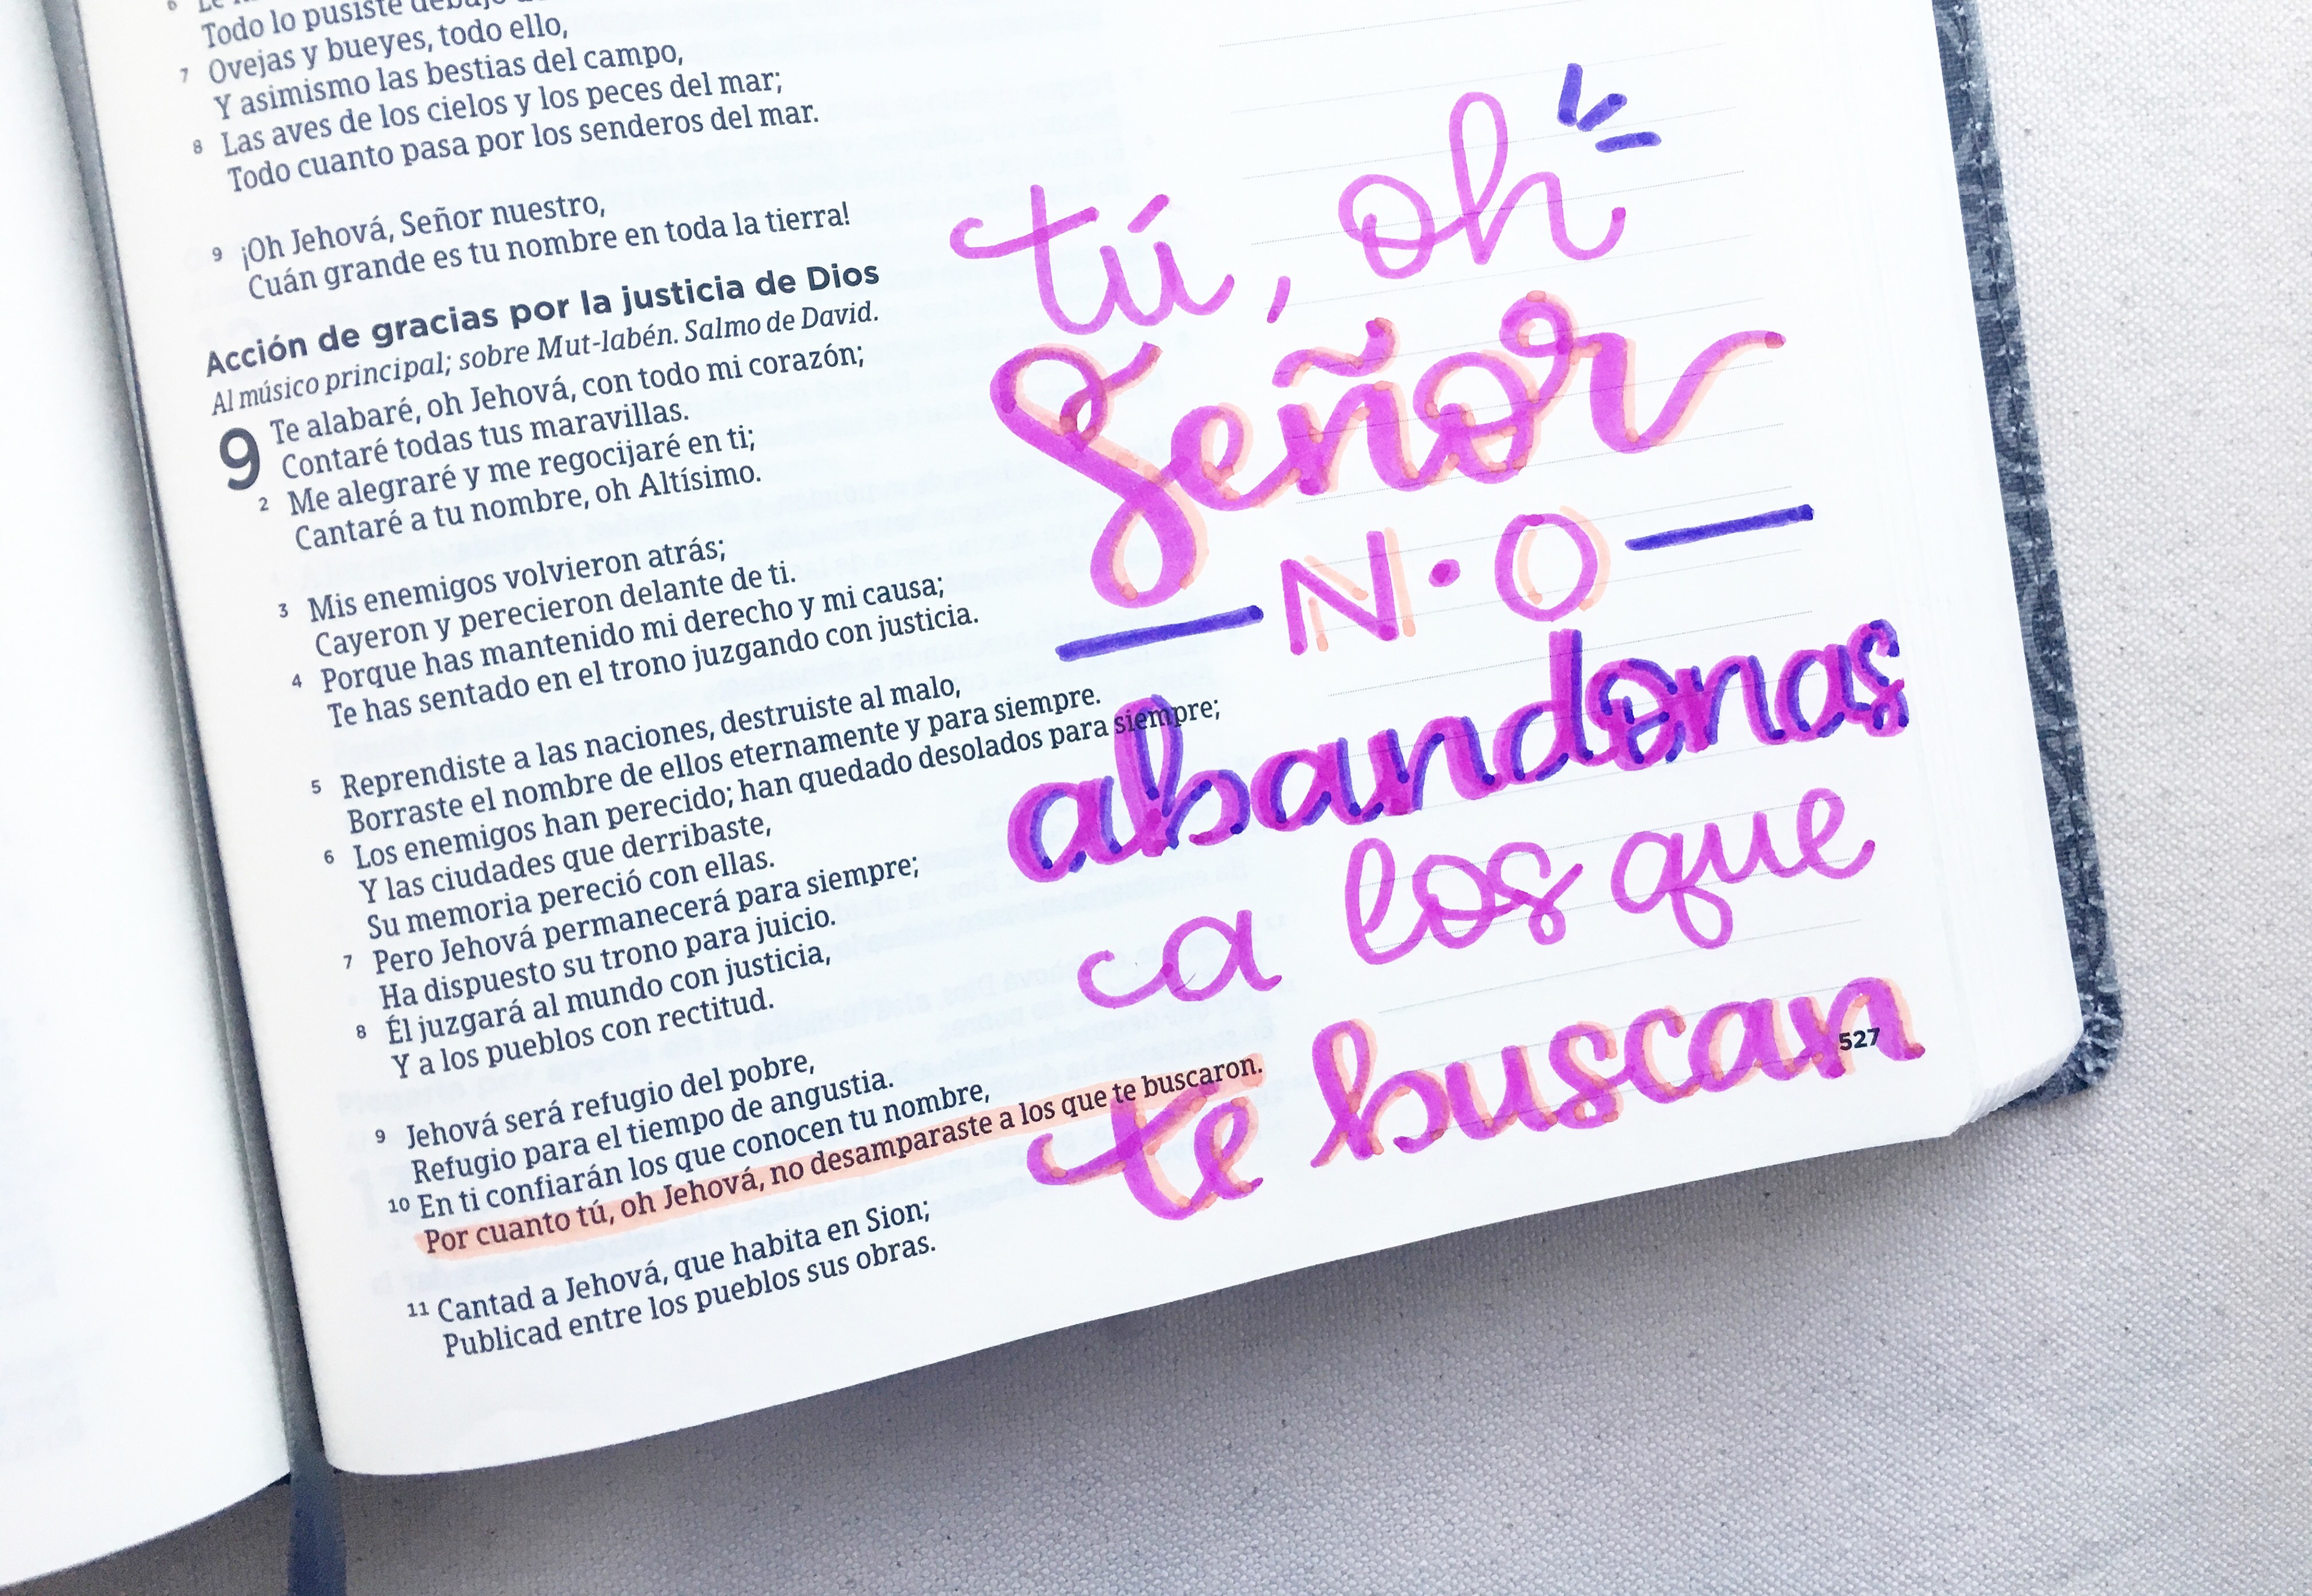 Todo lo pusiste
7 Ovejas y bueyes, todo ello,
Y asimismo las bestias del campo,
8 Las aves de los cielos y los peces del mar;
Todo cuanto pasa por los senderos del mar.
9 ¡Oh Jehová, Señor nuestro,
Cuán grande es tu nombre en toda la tierra!
Acción de gracias por la justicia de Dios
Al músico principal; sobre Mut-labén. Salmo de David.
9 Te alabaré, oh Jehová, con todo mi corazón;
Contaré todas tus maravillas.
2 Me alegraré y me regocijaré en ti;
Cantaré a tu nombre, oh Altísimo.
3 Mis enemigos volvieron atrás;
Cayeron y perecieron delante de ti.
4 Porque has mantenido mi derecho y mi causa;
Te has sentado en el trono juzgando con justicia.
5 Reprendiste a las naciones, destruiste al malo,
Borraste el nombre de ellos eternamente y para siempre.
6 Los enemigos han perecido; han quedado desolados para siempre;
Y las ciudades que derribaste,
Su memoria pereció con ellas.
7 Pero Jehová permanecerá para siempre;
Ha dispuesto su trono para juicio.
8 Él juzgará al mundo con justicia,
Y a los pueblos con rectitud.
9 Jehová será refugio del pobre,
Refugio para el tiempo de angustia.
10 En ti confiarán los que conocen tu nombre,
Por cuanto tú, oh Jehová, no desamparaste a los que te buscaron.
11 Cantad a Jehová, que habita en Sion;
Publicad entre los pueblos sus obras.
tú, oh
Señor
N·O
abandonas
ca los que
te buscan
527